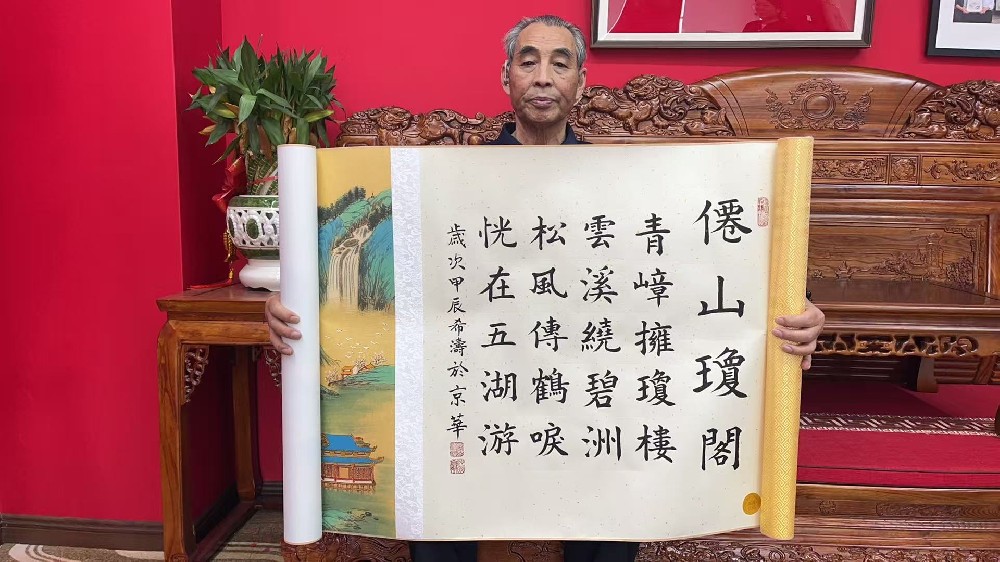 僊山瓊閣
青嶂擁瓊樓
雲溪繞碧洲
松風傳鶴唳
恍在五湖游
歲次甲辰希濤於京華